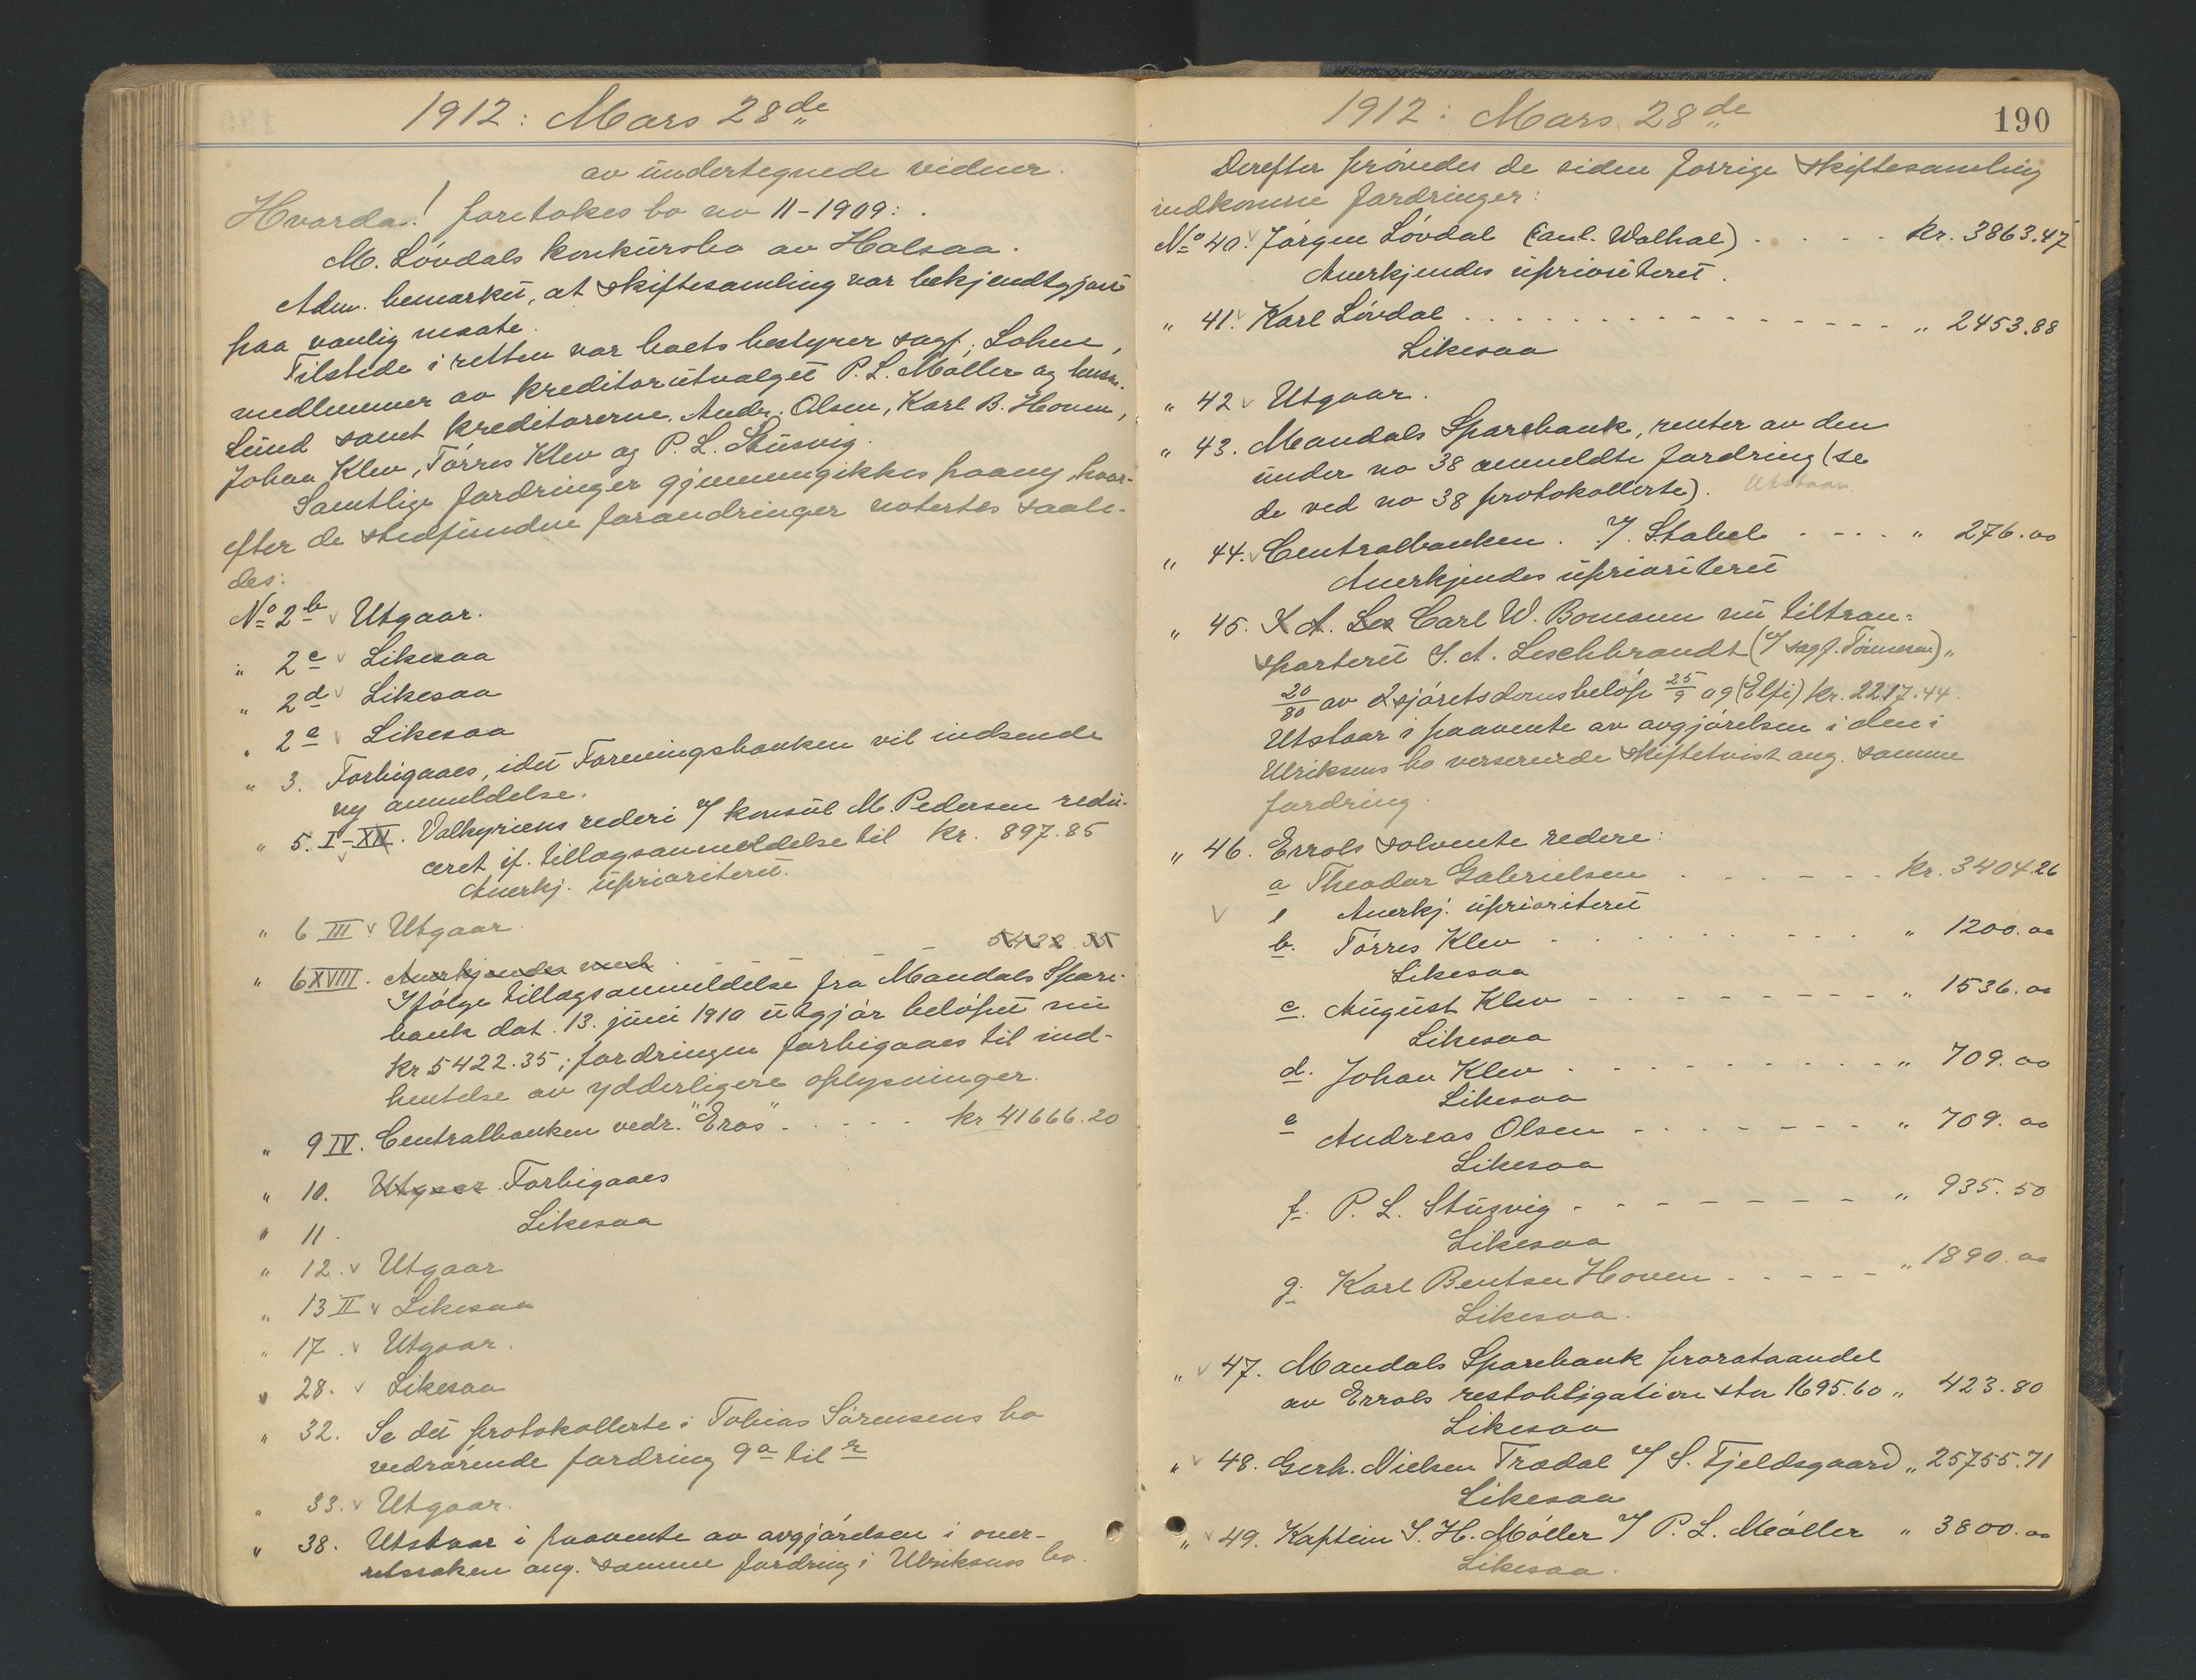 1912: Mars 28de
av undertegnede vidner.
Hvorda! foretokes bo no 11-1909:
M. Løvdals konkursbo av Halsaa.
Adm. bemærket, at skiftesamling var bekjendtgjort
paa vanlig maate.
Tilstede i retten var boets bestyrer sagf. Lohne,
medlemmer av kreditorutvalget P. L. Møller og
Lund samt kreditorerne Andr. Olsen, Karl B. Hoven,
Johan Klev, Tørres Klev og P. L. Stusvig.
Samtlige fordringer gjennemgikkes paany, hvor-
efter de stedfundne forandringer notertes saale-
des:
No 2b v Utgaar.
" 2c v Likesaa
" 2d v Likesaa
" 2e v Likesaa
" 3. Forbigaaes, idet Foreningsbanken vil indsende
ny anmeldelse.
" 5. I-XII. Valkyriens rederi v/ konsul M. Pedersen redu-
ceret if. tillægsanmeldelse til kr. 897.85
Anerkj. uprioritert.
" 6 III v Utgaar.
5432.35
" 6 XVIII. Anerkjendes med
Ifølge tillægsanmeldelse fra Mandals Spare-
bank dat. 13. juni 1910 utgjør beløpet nu
kr 5422.35; fordringen forbigaaes til ind-
hentelse av ydderligere oplysninger.
" 9 IV. Centralbanken vedr. "Eros" - - - - - kr 41666.20
" 10. Utgaar Forbigaaes
" 11. Likesaa
" 12. v Utgaar
" 13 II v Likesaa
" 17. v Utgaar.
" 28. v Likesaa
" 32. Se det protokollerte i Tobias Sørensens bo
vedrørende fordring 9a til r
" 33. v Utgaar.
" 38. Utstaar i paavente av avgjørelsen i over-
retssaken ang. samme fordring i Ulriksens bo.
1912: Mars 28de
190
Derefter prøvedes de siden forrige skiftesamling
indkomne fordringer:
No 40. v Jørgen Løvdal (anl. Walhal) - - - - - kr. 3863.47
Anerkjendes uprioritert.
" 41. v Karl Løvdal - - - - - " 2453.88
Likesaa
" 42 v Utgaar.
" 43. Mandals Sparebank, renter av den
under no 38 anmeldte fordring (se
de ved no 38 protokollerte). Utstaar.
" 44. v Centralbanken. v/ Stabel - - - - " 276.00
Anerkjendes uprioritert
" 45. I. A. Les Carl W. Bomann nu tiltran-
sporteret I. A. Leschbrandt (v/ sagf. Tønnesen) "
20/80 av sjøretsdomsbeløp 25/9 09 (Elfi) kr. 2217.44.
Utstaar i paavente av avgjørelsen i den i
Ulriksens bo verserende skiftetvist ang. samme
fordring.
" 46. Errols solvente redere:
a Theodor Gabrielsen - - - - - kr. 3404.26
v Anerkj. uprioritert
b. Tørres Klev - - - - - " 1200.00
Likesaa
c. August Klev - - - - - " 1536.00
Likesaa
d. Johan Klev - - - - - " 709.00
Likesaa
e Andreas Olsen - - - - - " 709.00
Likesaa
f. P. L. Stusvig - - - - - " 935.50
Likesaa
g. Karl Bentsen Hoven - - - - - " 1890.00
Likesaa.
" v 47. Mandals Sparebank prorataandel
av Errols restobligation stor 1695.60 " 423.80
Likesaa
" v 48. Gerh. Nielsen Trædal v/ S. Fjeldsgaard " 25755.71
Likesaa
" v 49. Kaptein S. H. Møller v/ P. L. Møller " 3800.00
Likesaa.